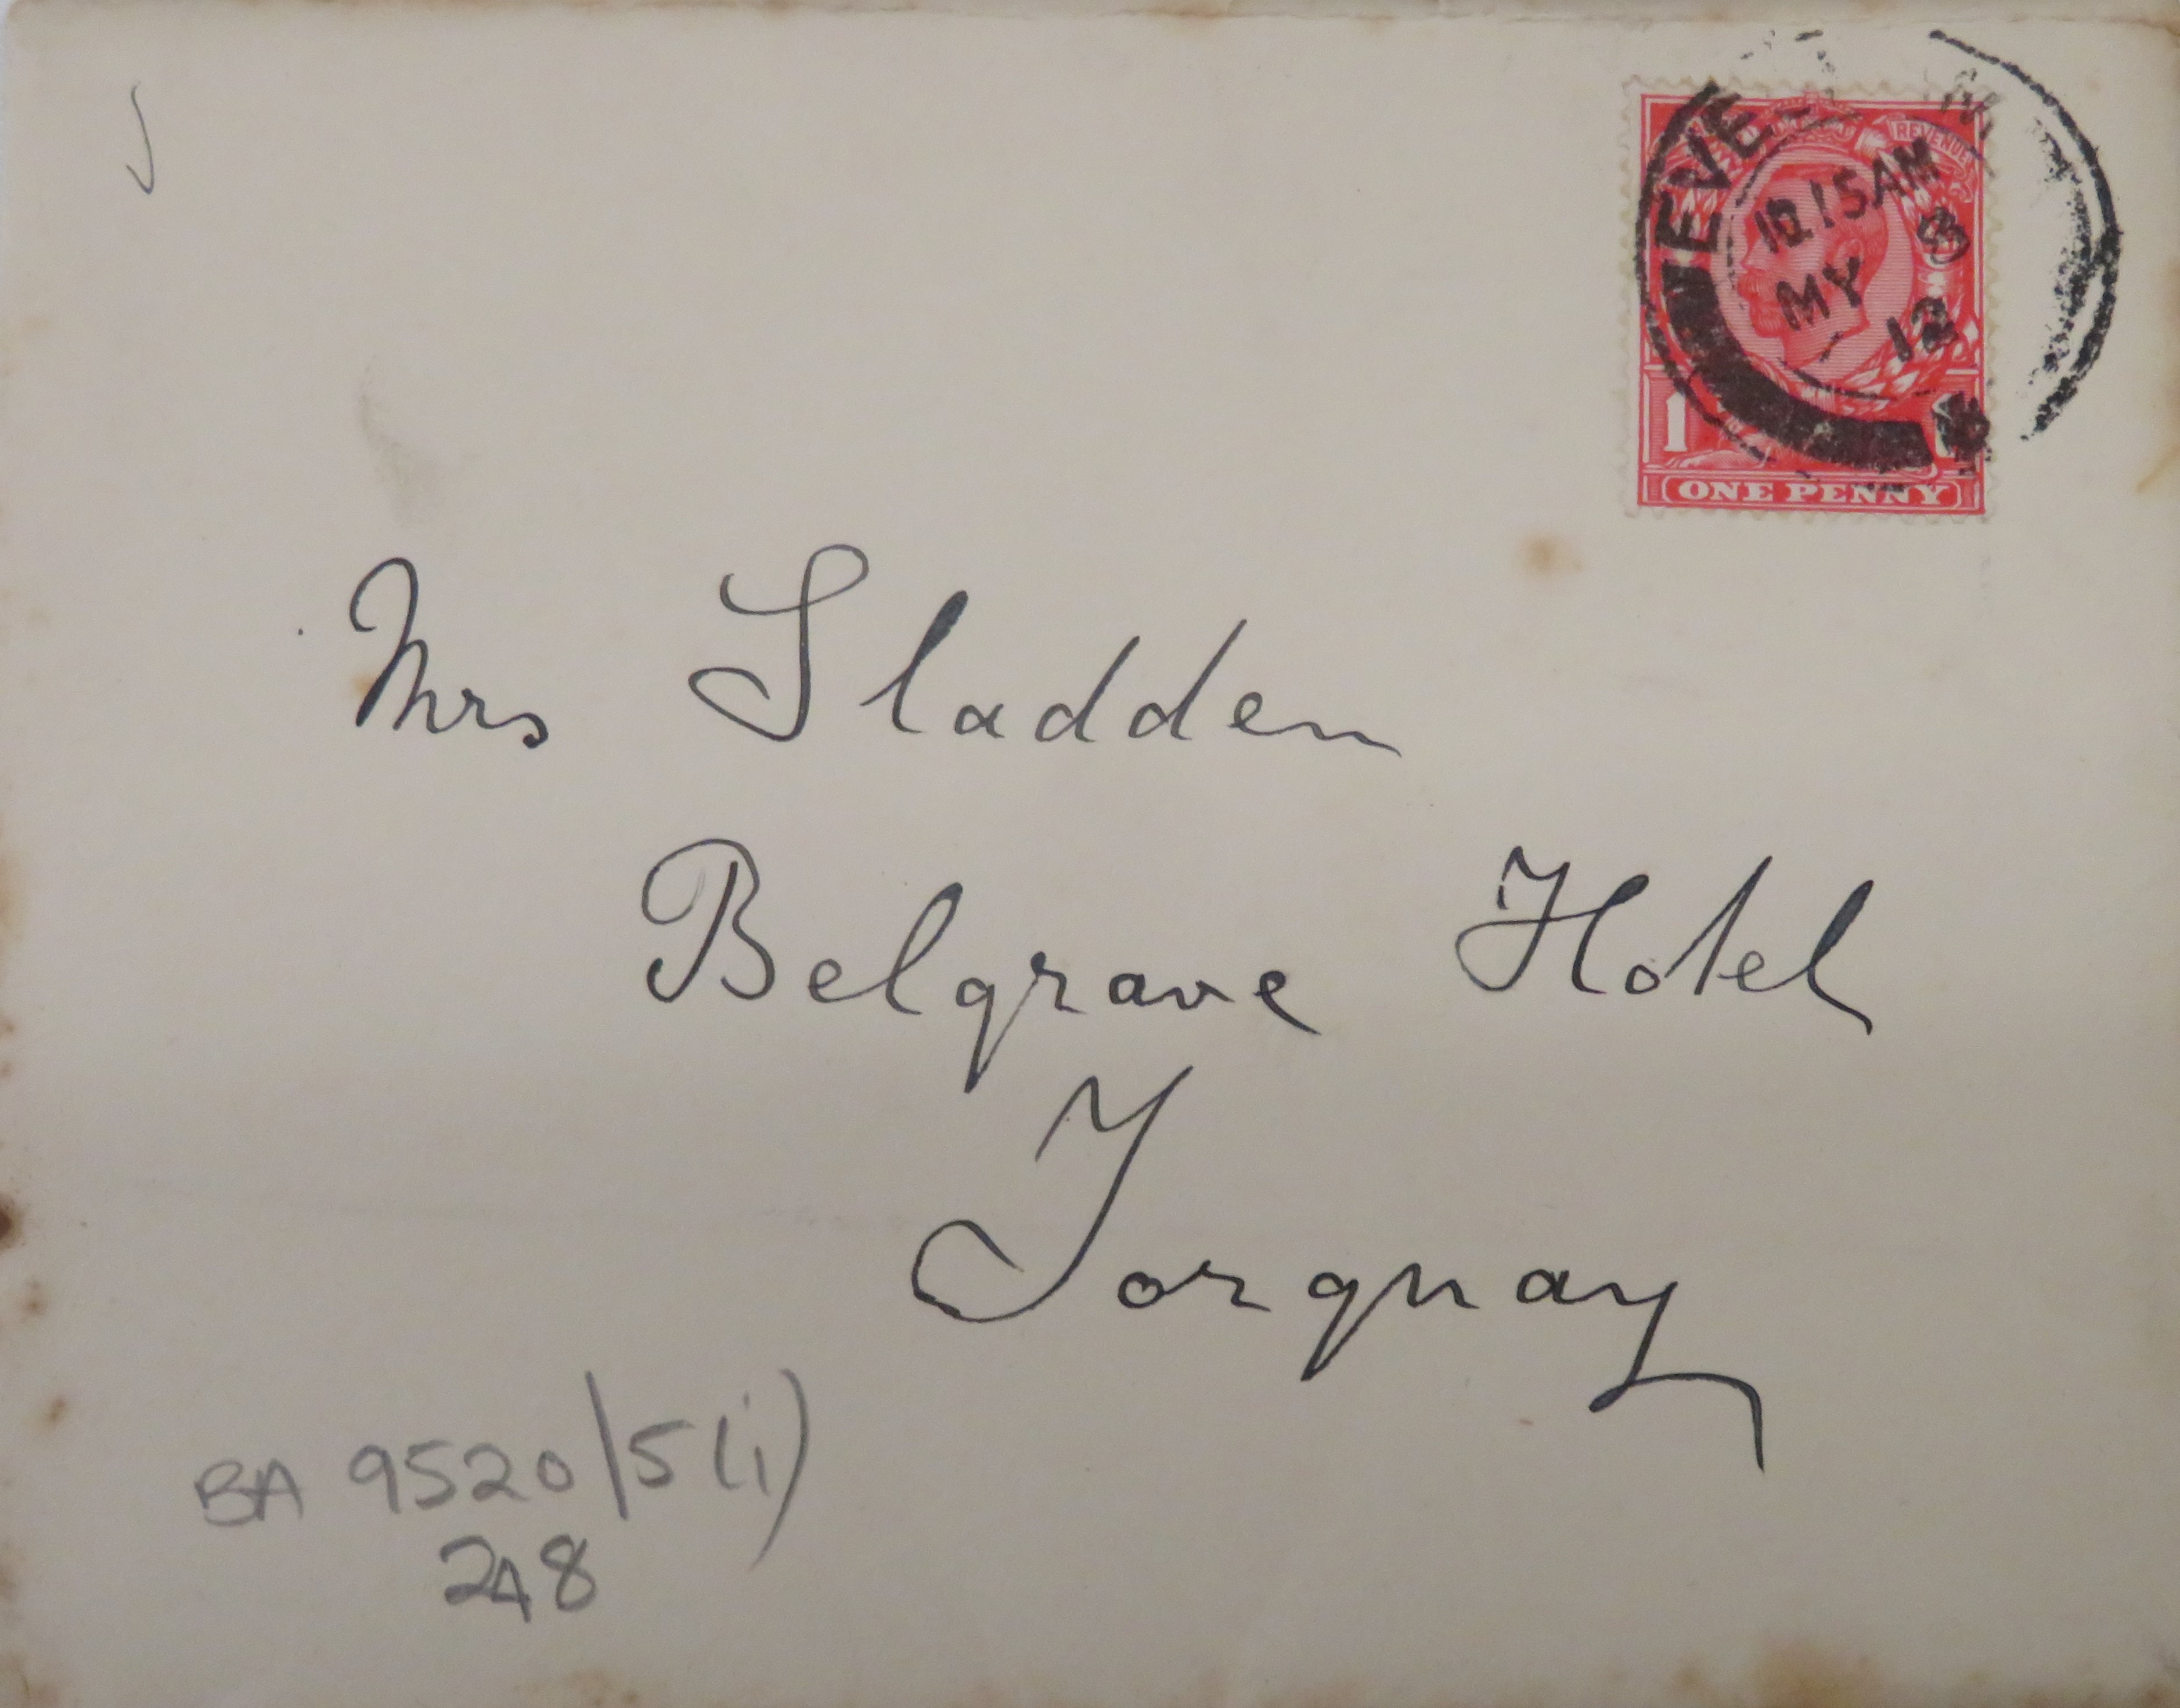 REVENUE
EVE
10.15AM
MY 3
12
1
ONE PENNY
Mrs Sladden
Belgrave Hotel
Torquay
BA 9520/5(i)
248